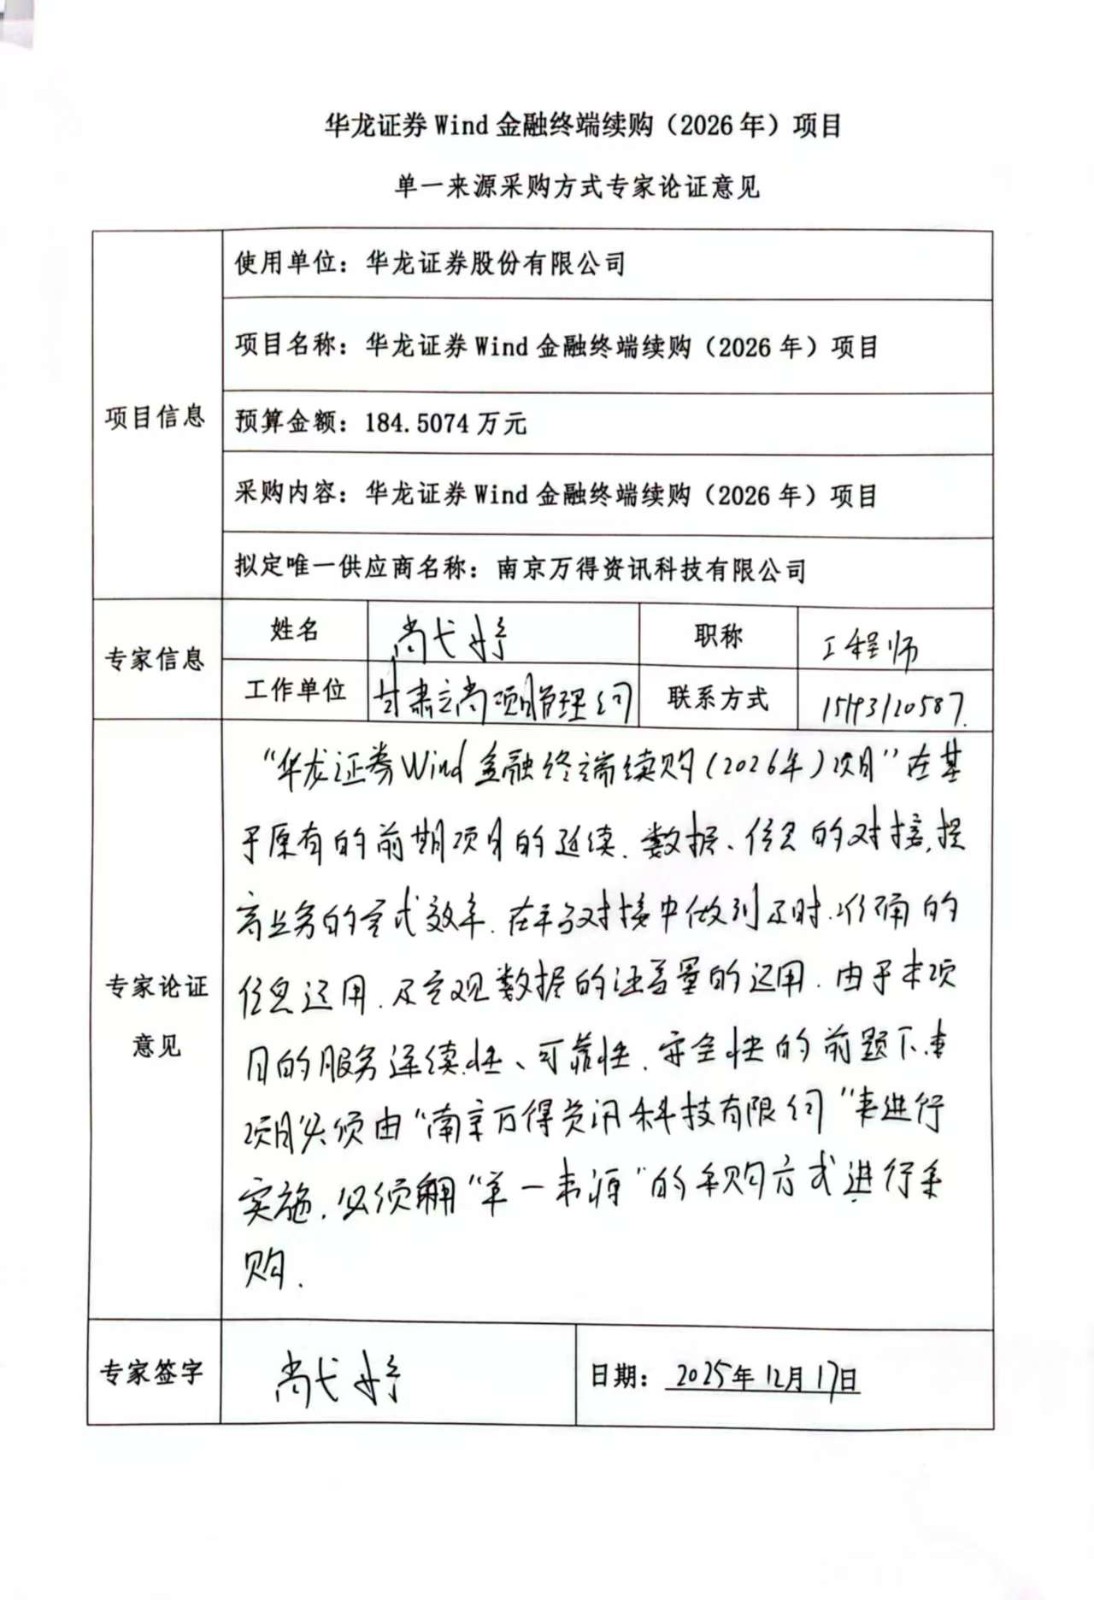 华龙证券Wind金融终端续购（2026年）项目
单一来源采购方式专家论证意见
项目信息
使用单位：华龙证券股份有限公司
项目名称：华龙证券Wind金融终端续购（2026年）项目
预算金额：184.5074万元
采购内容：华龙证券Wind金融终端续购（2026年）项目
拟定唯一供应商名称：南京万得资讯科技有限公司
专家信息
姓名
职称
工程师
工作单位
甘肃立尚项目管理公司
联系方式
专家论证意见
“华龙证券Wind金融终端续购（2026年）项目”在基
于原有的前期项目的延续、数据、信息的对接,提
高业务的 效率.在 对接中做到及时.准确的
信息运用.及宏观数据的 量的运用.由于本项
目的服务连续性、可靠性.安全性的前题下.本
项目必须由“南京万得资讯科技有限公司”来进行
实施.必须 用“单一来源”的采购方式进行采
购.
专家签字
日期：2025年12月17日